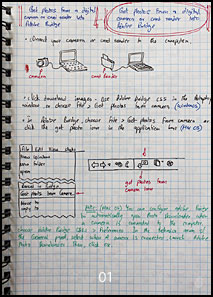 Get photos from a digital
camera or card reader into
Adobe Bridge
Get photos from a digital
camera or card reader into
Adobe Bridge
connect your camera or card reader to the computer.
camera
card reader
in Adobe Bridge choose File > Get Photos from camera or
click the get photo icon in the application bar (Mac OS)
File Edit View
New window
New folder
open
Get photos from camera
Move to
get photos from
camera icon
Note: (Mac OS) You can configure Adobe Bridge
to automatically open Photo Downloader when
a camera is connected to the computer.
choose Adobe Bridge CS5 > Preferences. In the behavior area of
the General panel, select When a camera is connected, launch Adobe
Photo Downloader. Then, click OK.
01